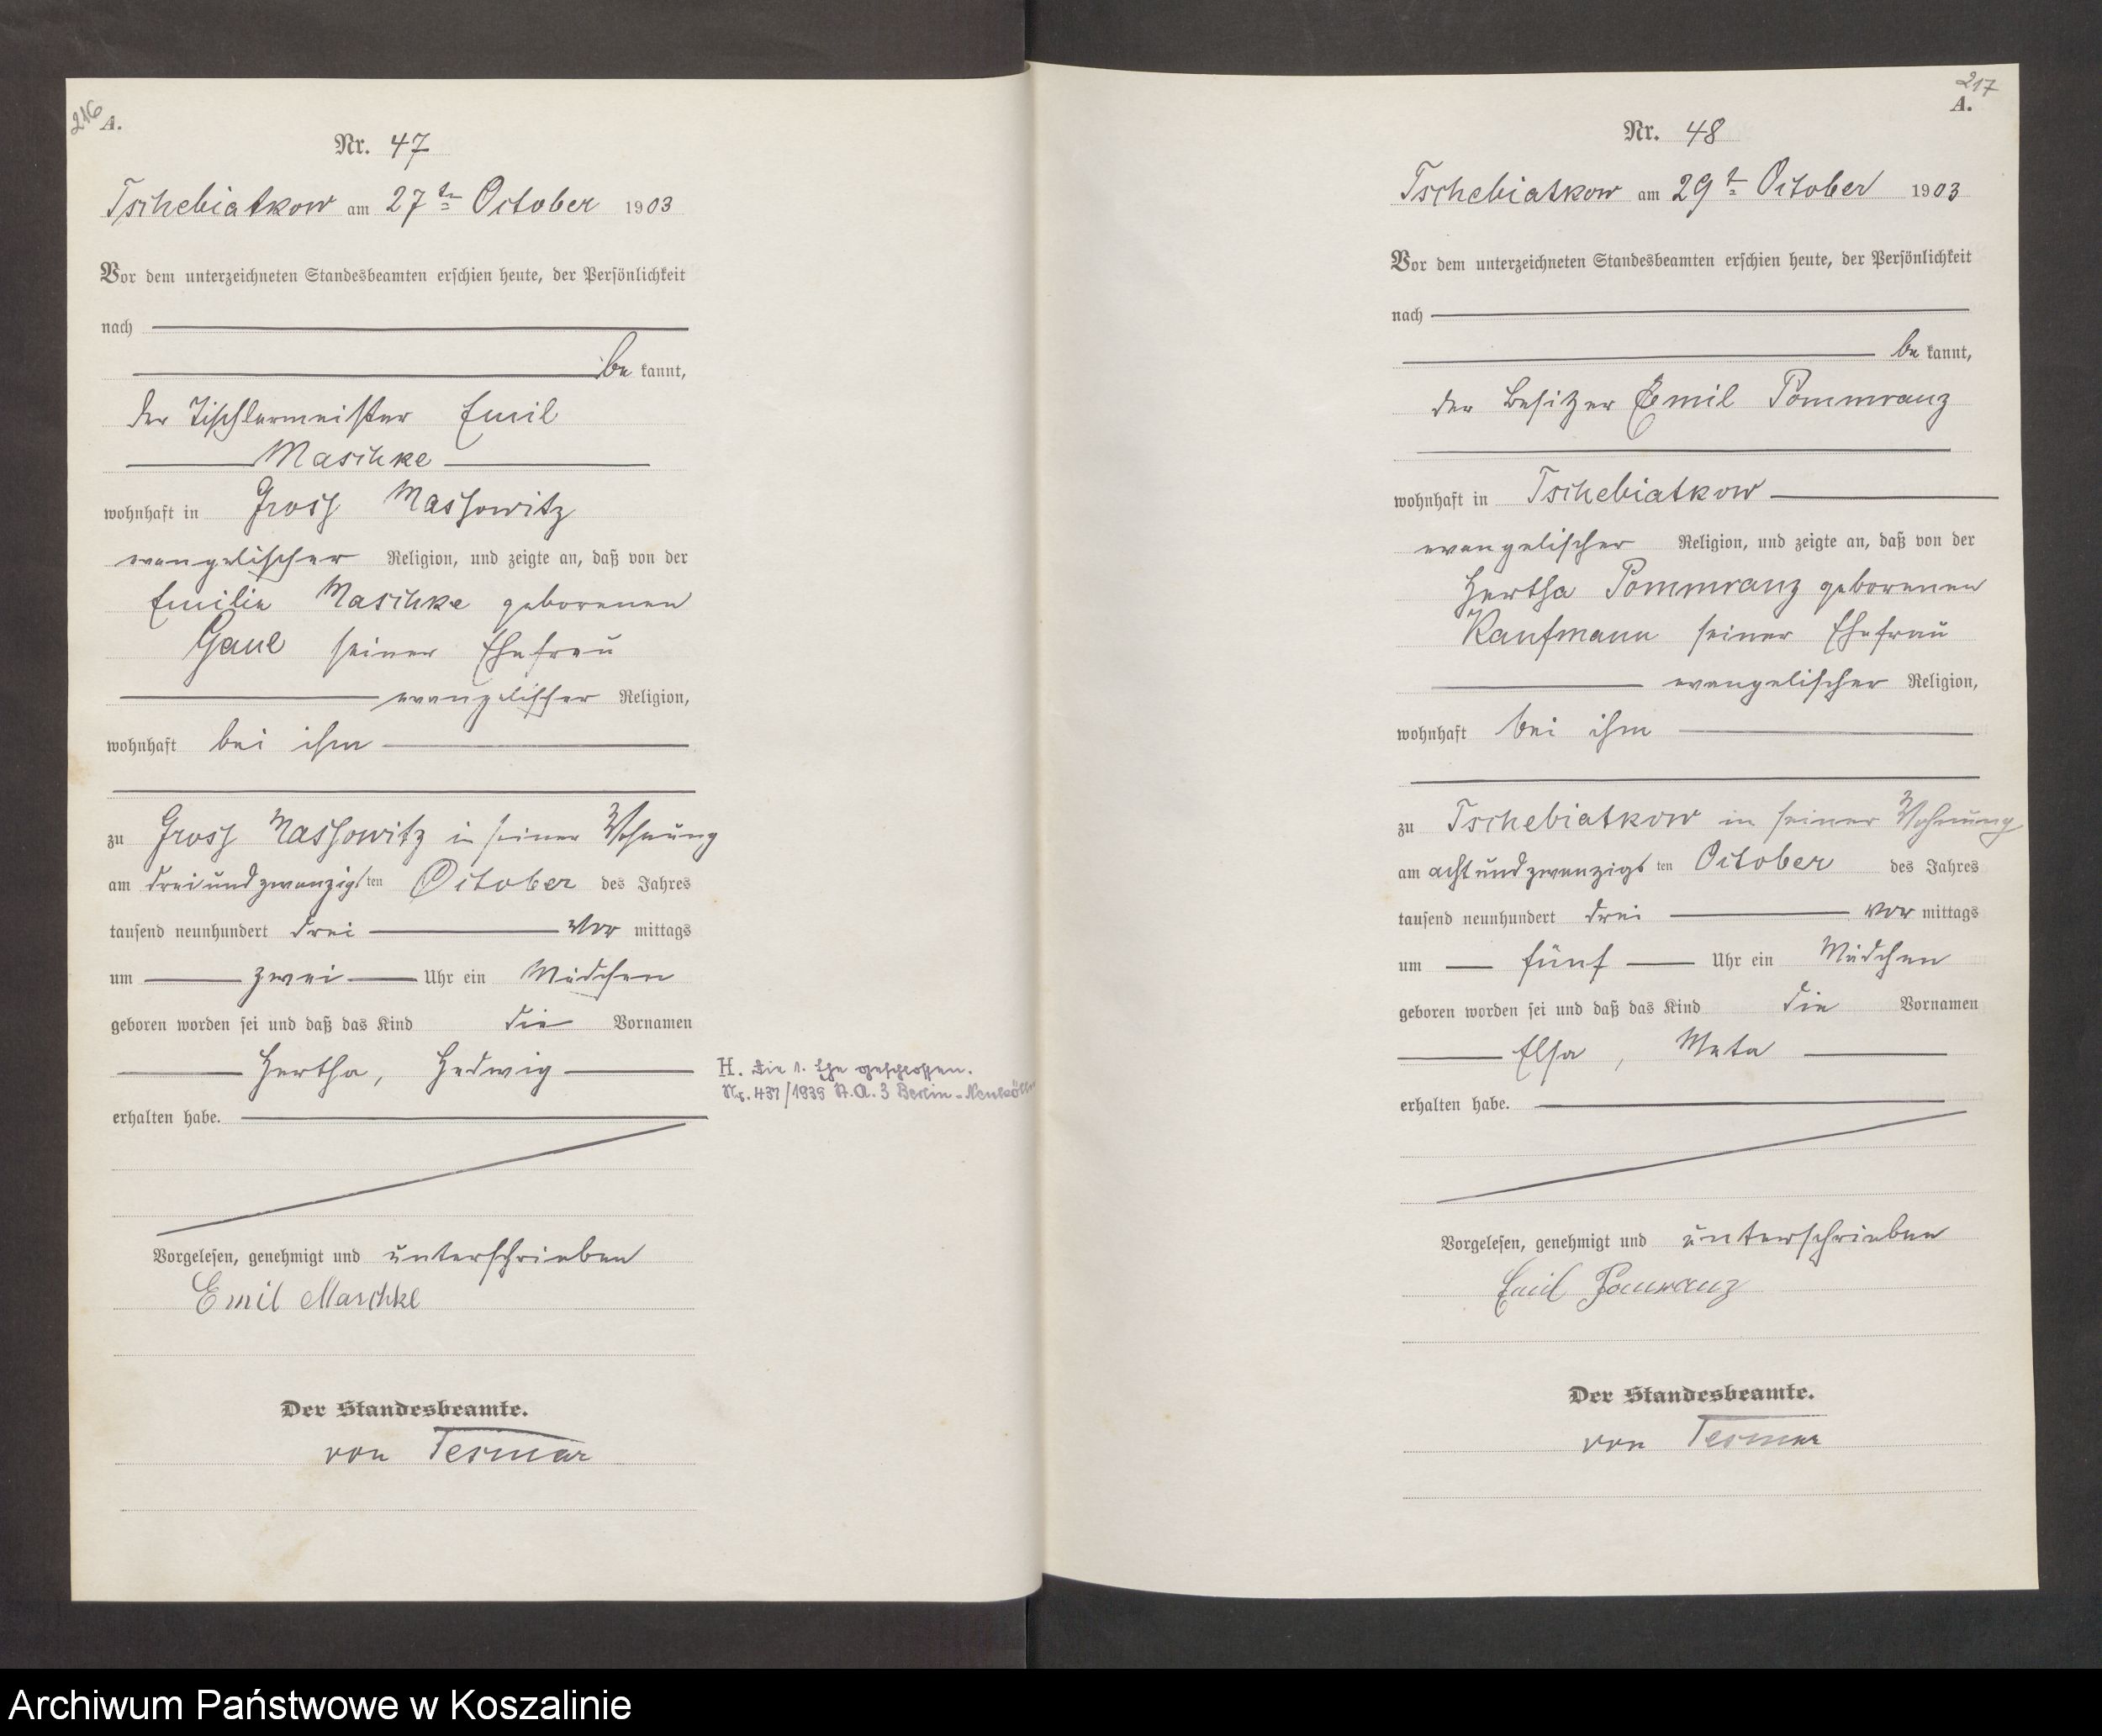 216
A.
Nr. 47
Tschebiatkow am 27ten October 1903
Vor dem unterzeichneten Standesbeamten erschien heute, der Persönlichkeit
nach
be kannt,
der Tischlermeister Emil
Maschke
wohnhaft in Gross Massowitz
evangelischer Religion, und zeigte an, daß von der
Emilie Maschke geborenen
Gaul seiner Ehefrau
evangelischer Religion,
wohnhaft bei ihm
zu Gross Massowitz in seiner Wohnung
am dreiundzwanzigsten October des Jahres
tausend neunhundert drei Vor mittags
um zwei Uhr ein Mädchen
geboren worden sei und daß das Kind die Vornamen
Hertha, Hedwig
H. Die 1. Ehe geschlossen.
Nr. 437/1935 St.A. 3 Berlin-Neukölln
erhalten habe.
Vorgelesen, genehmigt und unterschrieben
Emil Maschke
Der Standesbeamte.
von Tesmar
217
A.
Nr. 48
Tschebiatkow am 29t October 1903
Vor dem unterzeichneten Standesbeamten erschien heute, der Persönlichkeit
nach
be kannt,
der Besitzer Emil Pommranz
wohnhaft in Tschebiatkow
evangelischer Religion, und zeigte an, daß von der
Hertha Pommranz geborenen
Kaufmann seiner Ehefrau
evangelischer Religion,
wohnhaft bei ihm
zu Tschebiatkow in seiner Wohnung
am achtundzwanzigsten October des Jahres
tausend neunhundert drei Vor mittags
um fünf Uhr ein Mädchen
geboren worden sei und daß das Kind die Vornamen
Elsa, Meta
erhalten habe.
Vorgelesen, genehmigt und unterschrieben
Emil Pommranz
Der Standesbeamte.
von Tesmar
Archiwum Państwowe w Koszalinie